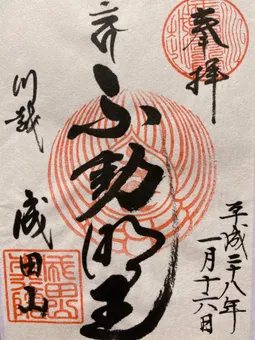 奉拝
平成二十八年
一月十六日
不動明王
川越
成田山